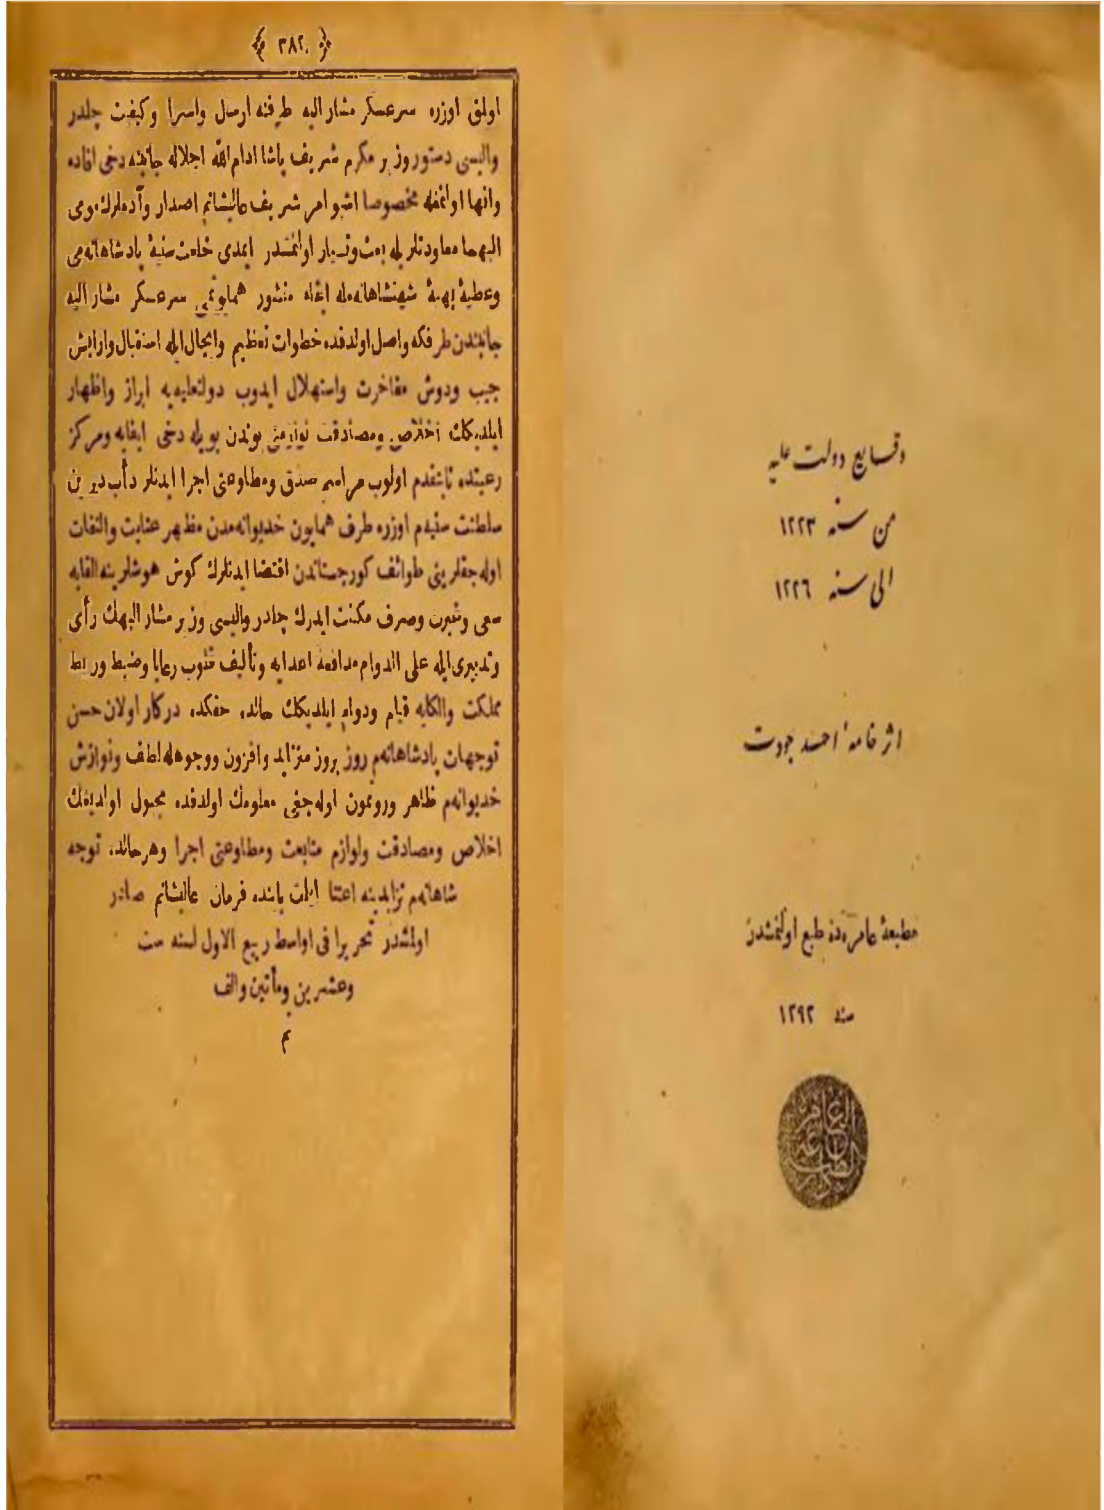 ﴿ ٣٨٢ ﴾
اولمق اوزره سرعسكر مشار اليه طرفنه ارسال واسرا وكيفيت چلدر
واليسى دستور وزير مكرم شريف پاشا ادام الله اجلاله جانبنه دخى افاده
وانها اولنمغله مخصوصا اشبو امر شريف عاليشانم اصدار وآدملرك مومى
اليهما معاودتلريله بعث وتسيار اولنمشدر ايمدى خلعت سنيۀ پادشاهانه مى
وعطيۀ بهيۀ شهنشاهانه مله اشاه منشور همايونمى سرعسكر مشار اليه
جانبندن طرفكه واصل اولدقده خطوات تعظيم وايجال ايله استقبال وارايش
جيب ودوش مفاخرت واستهلال ايدوب دولتعليه يه ابراز واظهار
ايلديكك اخلاص ومصادقت لوازمنى بوندن بويله دخى ايفايه ومركز
رعيتده ثابتقدم اولوب مراسم صدق ومطاوعتى اجرا ايدنلر دأب ديرين
سلطنت سنيه م اوزره طرف همايون خديوانه مدن مظهر عنايت والتفات
اوله جقلرينى طوائف كورجستاندن اقتضا ايدنلرك كوش هوشلرينه القايه
سعى وغيرت وصرف مكنت ايدرك چلدر واليسى وزير مشار اليهك رأى
وتدبيرى ايله على الدوام مدافعۀ اعدايه وتأليف قلوب رعايا وضبط وربط
مملكت والكايه قيام ودوام ايلديكك حالده حقكده دركار اولان حسن
توجهات پادشاهانه م روز بروز متزايد وافزون ووجوهله لطف ونوازش
خديوانه م ظاهر ورونمون اوله جغى معلومك اولدقده مجبول اولديغك
اخلاص ومصادقت ولوازم متابعت ومطاوعتى اجرا وهرحالده توجه
شاهانه م تزايدينه اعتنا ايلمك بابنده فرمان عاليشانم صادر
اولمشدر تحريرا فى اواسط ربيع الاول لسنه ست
وعشرين ومأتين والف
م
وقايع دولت عليه
من سنه ١٢٢٣
الى سنه ١٢٢٦
اثر خامۀ احمد جودت
مطبعۀ عامره ده طبع اولنمشدر
سنه ١٢٩٢